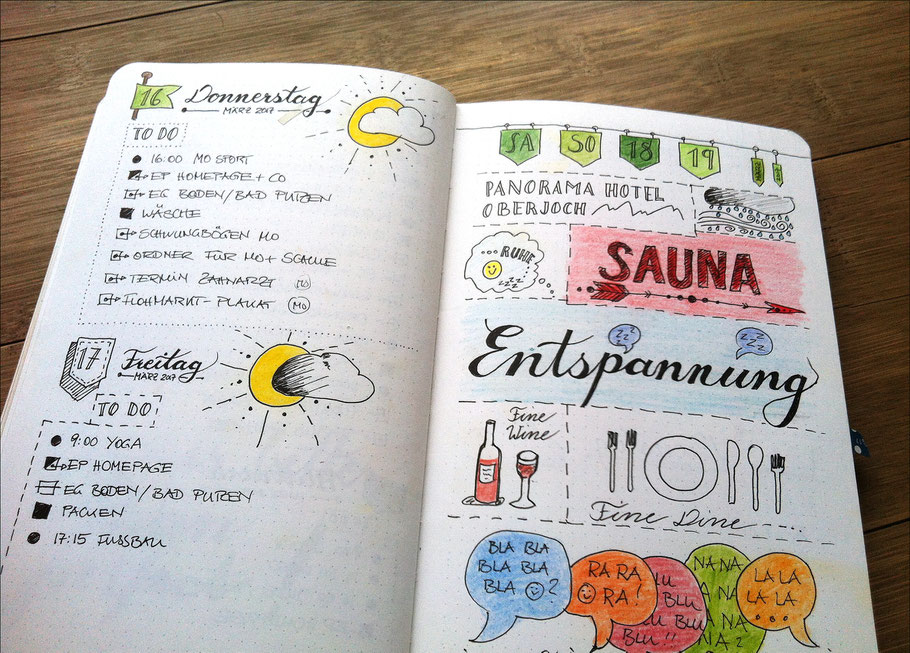 16 Donnerstag
MÄRZ 2017
TO DO
16:00 MO SPORT
EP HOMEPAGE + CO
EG BODEN/BAD PUTZEN
WÄSCHE
SCHWUNGBÖGEN MO
ORDNER FÜR MO + SCHULE
TERMIN ZAHNARZT MO
FLOHMARKT-PLAKAT MO
17 Freitag
MÄRZ 2017
TO DO
9:00 YOGA
EP HOMEPAGE
EG BODEN/BAD PUTZEN
PACKEN
17:15 FUSSBALL
SA SO 18 19
PANORAMA HOTEL
OBERJOCH
... RUHE
zzz
SAUNA
zzz zzz
Entspannung
Fine
Wine
Fine Dine
BLA BLA
BLA BLA BLA
BLA ?
RA RA
RA!
BLU
BLU
BLU "
NA NA
NA NA
NA
NA ?
LA LA
LA LA
...